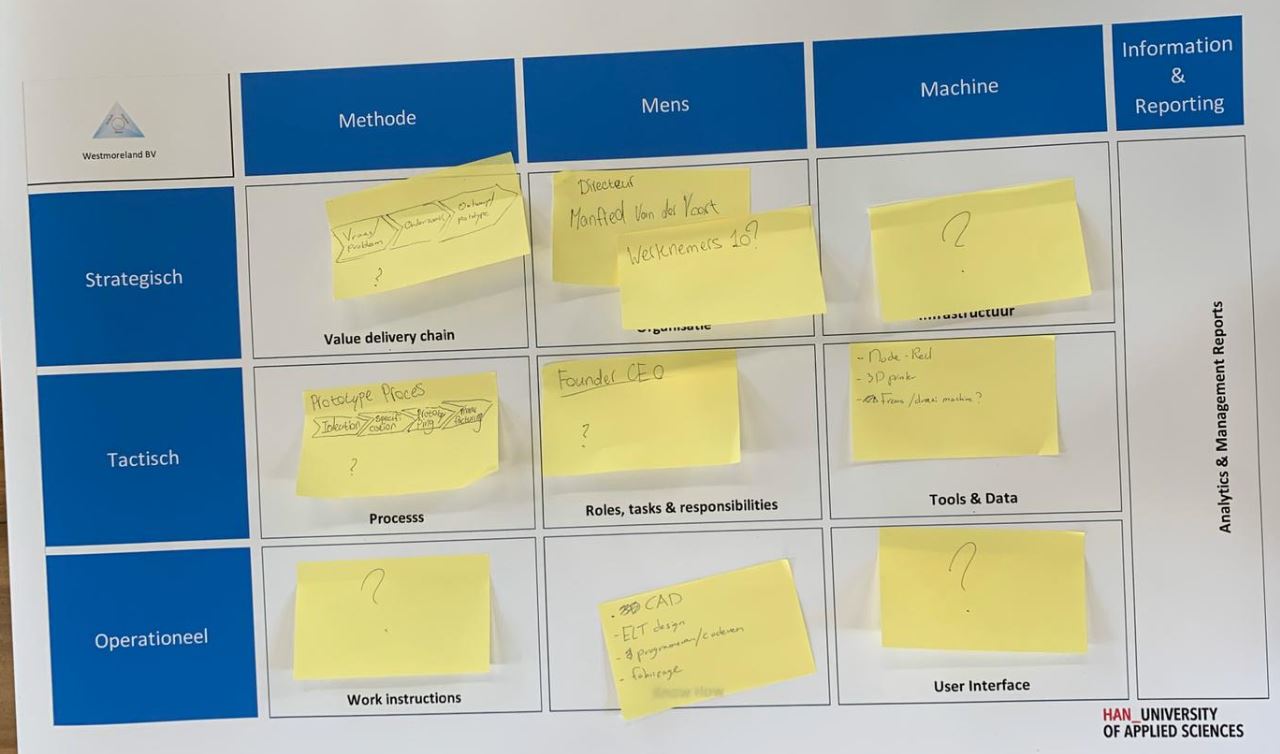 Westmoreland BV
Methode
Mens
Machine
Information
&
Reporting
Strategisch
Vraag/
Problem
Onderzoek
Ontwerp/
prototype
?
Value delivery chain
Directeur
Manfred Van der Voort
Werknemers 10?
Organisatie
?
Infrastructuur
Tactisch
Prototype Proces
Specifi-
cation
Prototy
ping
?
Processs
Founder CEO
?
Roles, tasks & responsibilities
- Node-Red
- 3D printer
- Frees/draai machine?
Tools & Data
Analytics & Management Reports
Operationeel
?
Work instructions
CAD
- ELT design
- programmeren/coderen
- fabricage
Know How
?
User Interface
HAN_UNIVERSITY
OF APPLIED SCIENCES